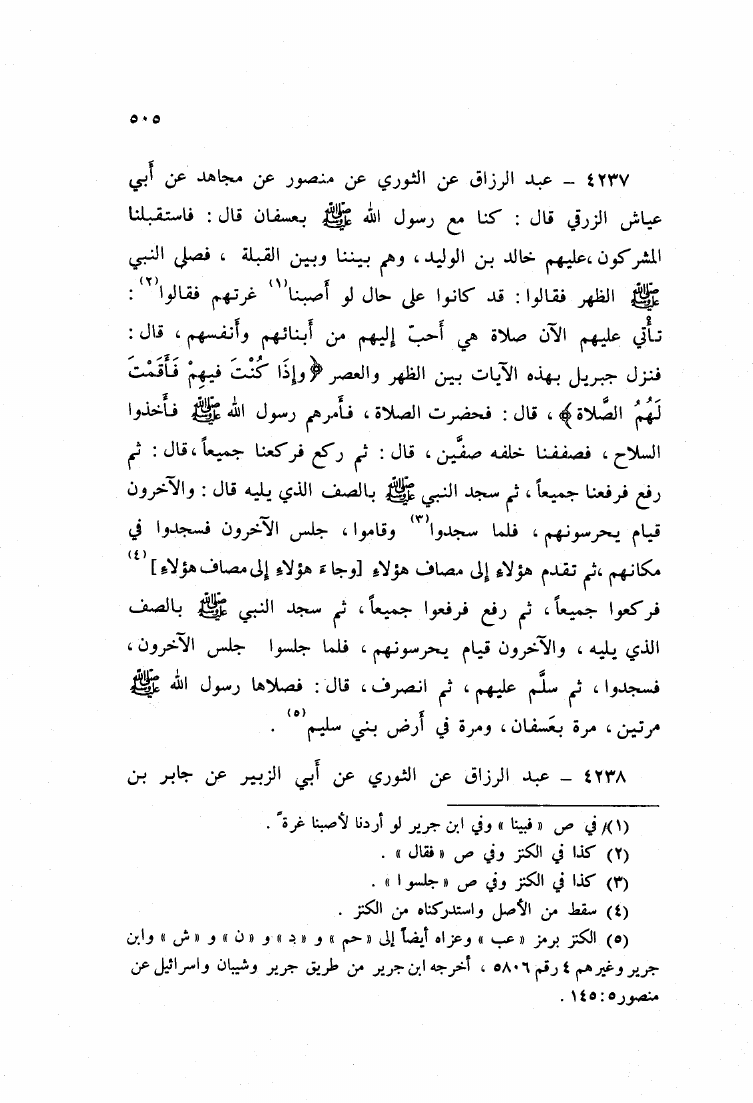 ٥٠٥
٤٢٣٧ – عبد الرزاق عن الثوري عن منصور عن مجاهد عن أبي
عياش الزرقي قال : كنا مع رسول الله ﷺ بعسفان قال : فاستقبلنا
المشركون ، عليهم خالد بن الوليد ، وهم بيننا وبين القبلة ، فصلى النبي
ﷺ الظهر فقالوا : قد كانوا على حال لو أصبنا (١) غرتهم فقالوا (٢) :
تأْتي عليهم الآن صلاة هي أَحبّ إليهم من أبنائهم وأنفسهم ، قال :
فنزل جبريل بهذه الآيات بين الظهر والعصر ﴿وإِذَا كُنْتَ فيهِمْ فَأَقَمْتَ
لَهُمُ الصَّلاة﴾ ، قال : فحضرت الصلاة ، فأمرهم رسول الله ﷺ فأخذوا
السلاح ، فصففنا خلفه صفَّين ، قال : ثم ركع فركعنا جميعاً ، قال : ثم
رفع فرفعنا جميعاً ، ثم سجد النبي ﷺ بالصف الذي يليه قال : والآخرون
قيام يحرسونهم ، فلما سجدوا (٣) وقاموا ، جلس الآخرون فسجدوا في
مكانهم ، ثم تقدم هؤلاءِ إلى مصاف هؤلاءِ [وجاءَ هؤلاءِ إلى مصاف هؤلاءِ] (٤)
فركعوا جميعاً ، ثم رفع فرفعوا جميعاً ، ثم سجد النبي ﷺ بالصف
الذي يليه ، والآخرون قيام يحرسونهم ، فلما جلسوا جلس الآخرون ،
فسجدوا ، ثم سلَّم عليهم ، ثم انصرف ، قال : فصلاها رسول الله ﷺ
مرتين ، مرة بعَسفان ، ومرة في أَرض بني سليم (٥) .
٤٢٣٨ – عبد الرزاق عن الثوري عن أبي الزبير عن جابر بن
(١) في ص « فبينا » وفي ابن جرير لو أردنا لأصبنا غرة ً .
(٢) كذا في الكنز وفي ص « فقال » .
(٣) كذا في الكنز وفي ص « جلسوا » .
(٤) سقط من الأصل واستدركناه من الكنز .
(٥) الكنز برمز « عب » وعزاه أيضاً إلى « حم » و « د » و « ن » و « ش » وابن
جرير وغيرهم ٤ رقم ٥٨٠٦ ، أخرجه ابن جرير من طريق جرير وشيبان واسرائيل عن
منصور ٥ : ١٤٥ .